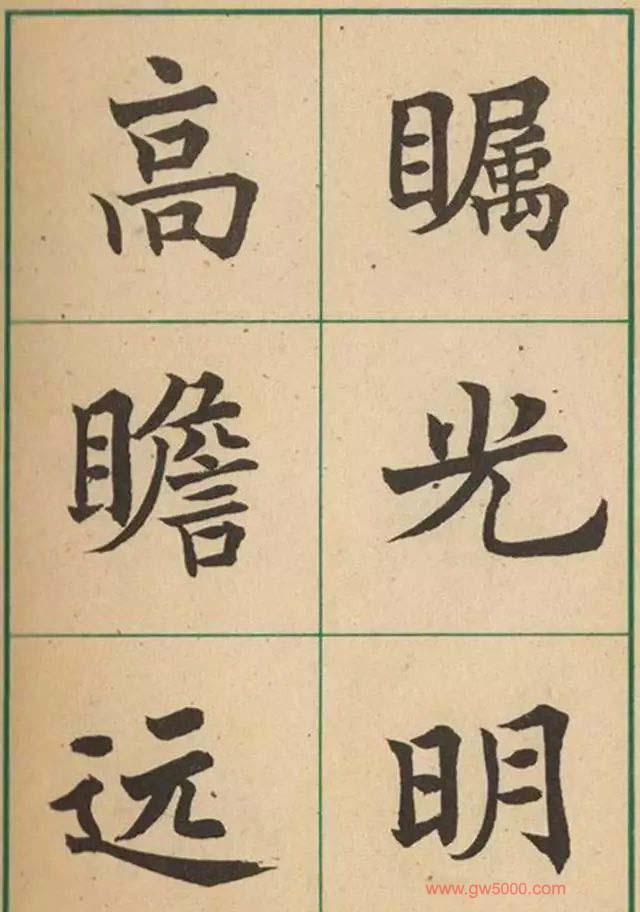 瞩光明
高瞻远
www.gw5000.com